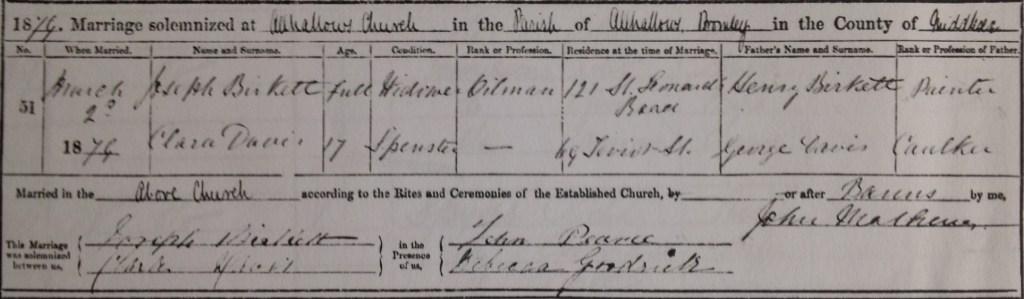 1874. Marriage solemnized at Allhallows Church in the Parish of Allhallows Bromley in the County of Middlesex
No. When Married. Name and Surname. Age. Condition. Rank or Profession. Residence at the time of Marriage. Father's Name and Surname. Rank or Profession of Father.
51 March 2d 1874 Joseph Birkett full Widower Oilman 121 St. Leonards Road Henry Birkett Painter
Clara Davis 17 Spinster — 69 Teviot St. George Davis Caulker
Married in the above Church according to the Rites and Ceremonies of the Established Church, by or after Banns by me,
John Mathews
This Marriage was solemnized between us, Joseph Birkett in the Presence of us, John Pearce
Clara Davis Rebecca Goodrick